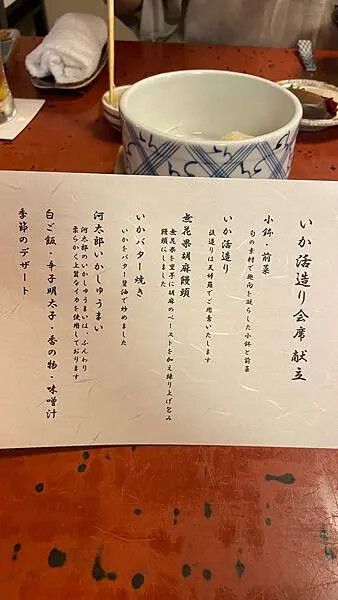 いか活造り会席 献立
小鉢・前菜
旬の素材で趣向を凝らした小鉢と前菜
いか活造り
後造りは天婦羅でご用意いたします
無花果胡麻饅頭
無花果を里芋に胡麻のペーストを加え練り上げ包み
饅頭にしました
いかバター焼き
いかをバター醤油で炒めました
河太郎いかしゅうまい
河太郎のいかしゅうまいは、ふんわり
柔らかく上質なイカを使用しております
白ご飯・辛子明太子・香の物・味噌汁
季節のデザート